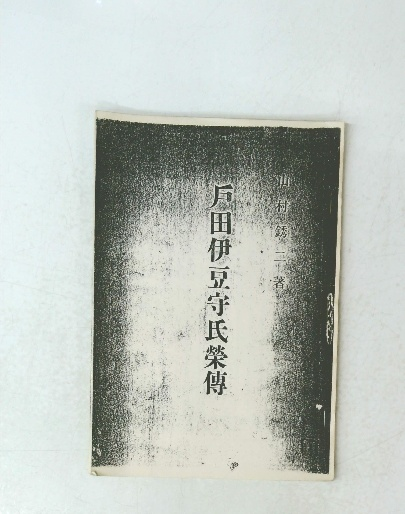 山村鏥二著
戸田伊豆守氏榮傳